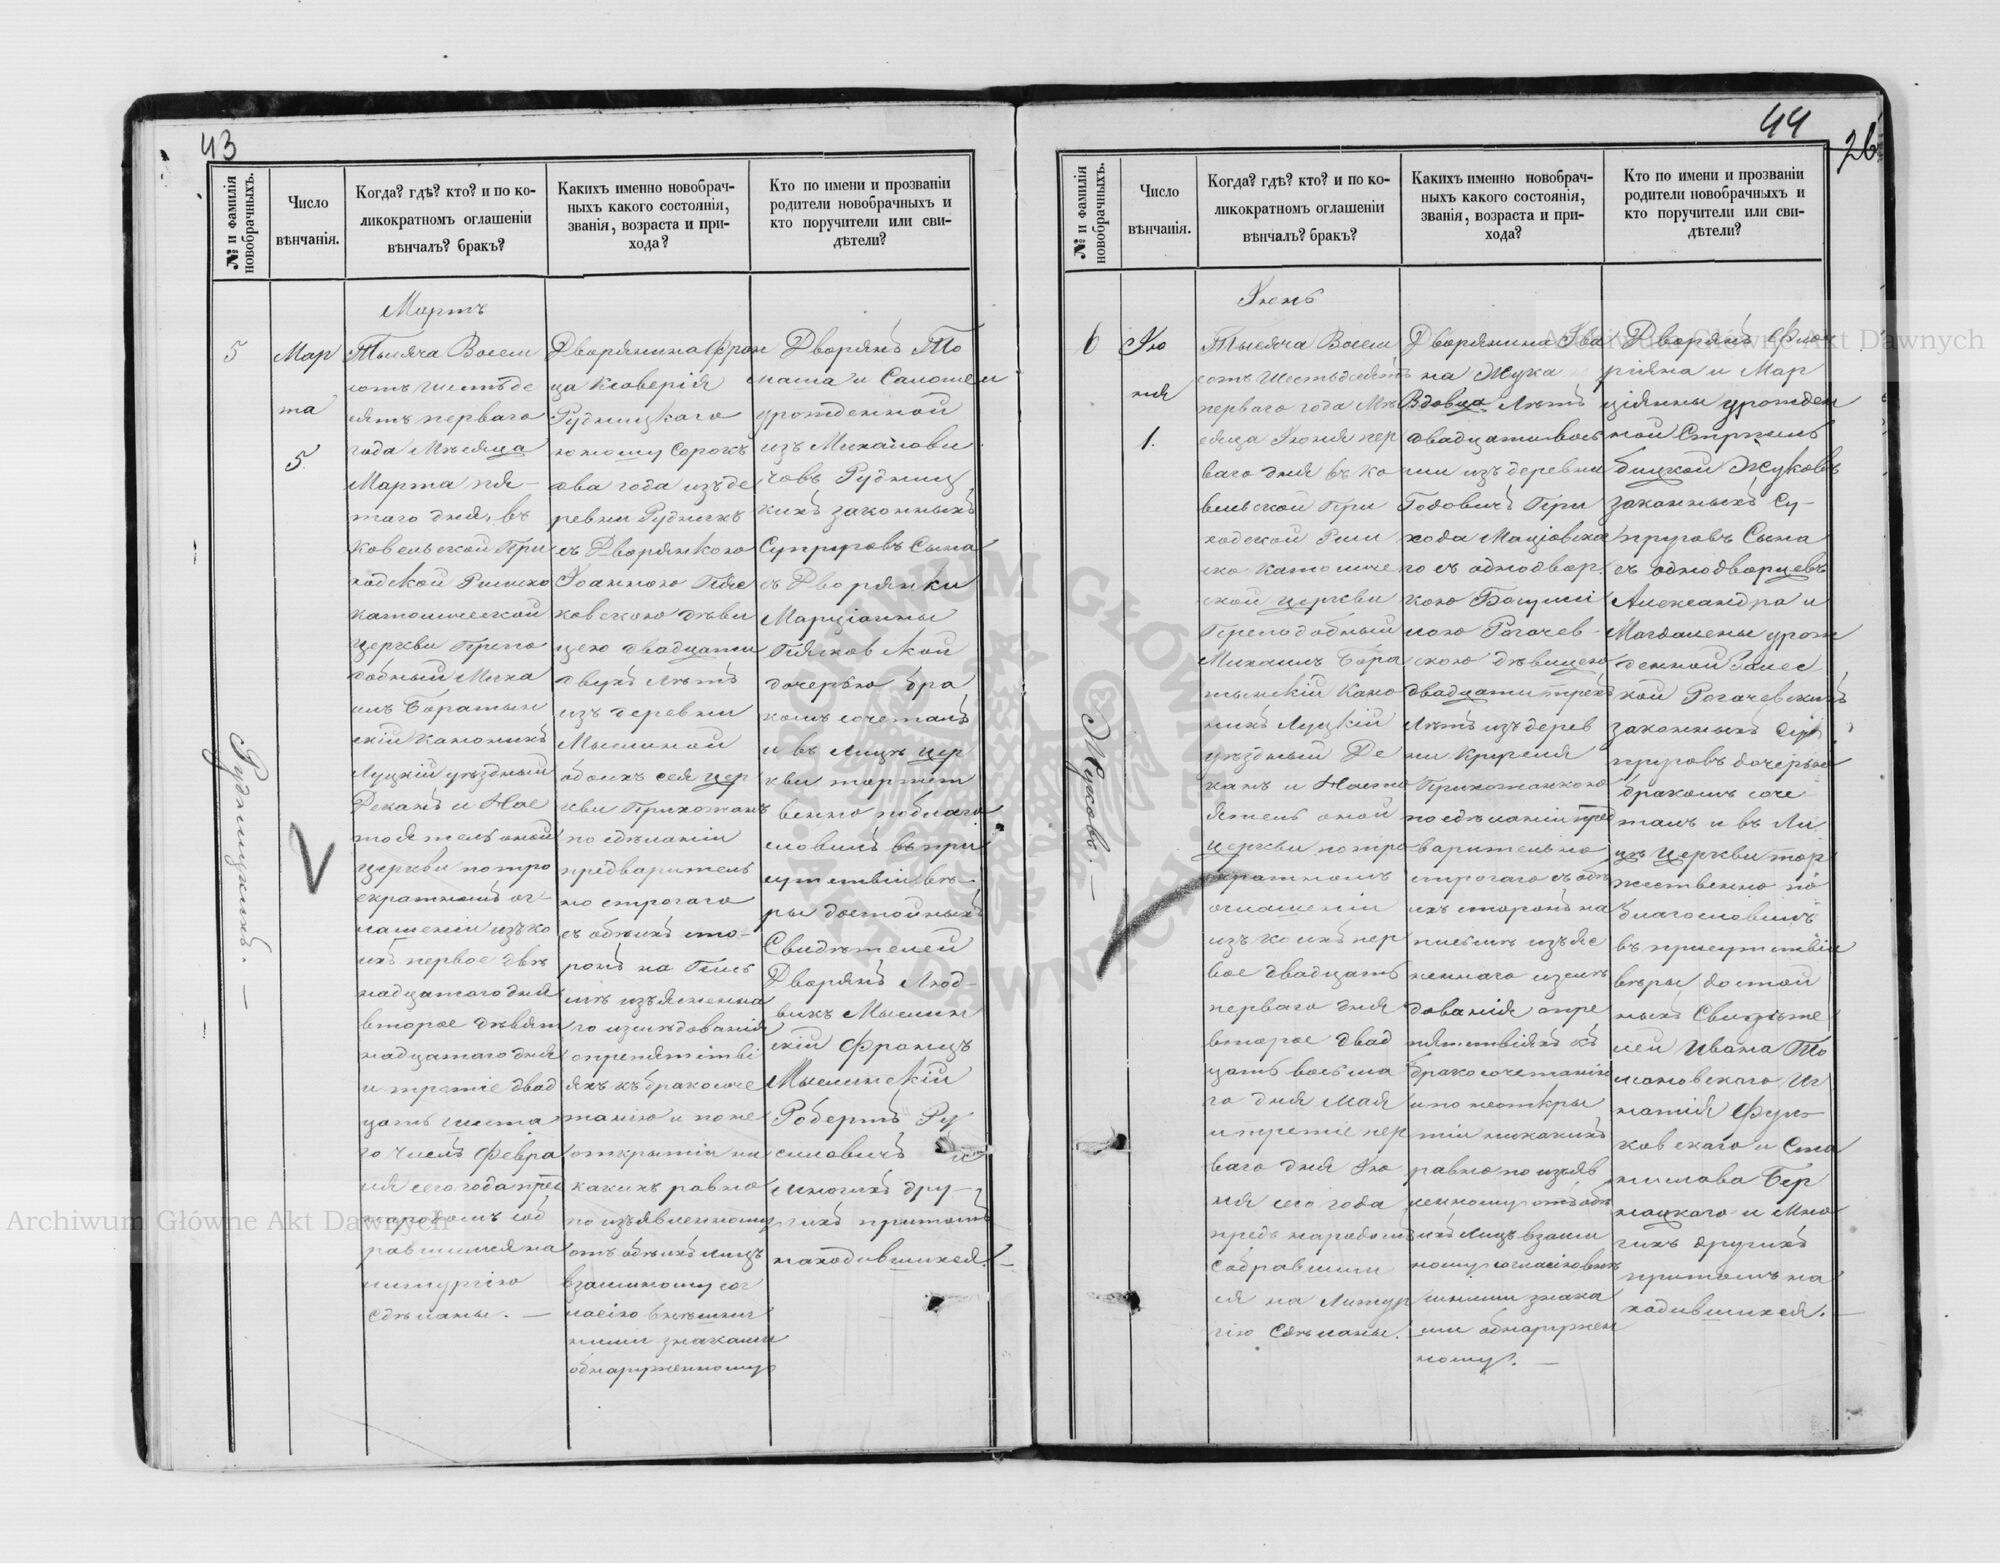 43
№ и фамилія новобрачныхъ.
Число вѣнчанія.
Когда? гдѣ? кто? и по ко-
ликократномъ оглашеніи
вѣнчалъ? бракъ?
Какихъ именно новобрач-
ныхъ какого состоянія,
званія, возраста и при-
хода?
Кто по имени и прозваніи
родители новобрачныхъ и
кто поручители или сви-
дѣтели?
5
Рудницкихъ. —
Мар
та
5.
Мартъ
Тысяча Восем
сотъ шестьде
сятъ перваго
года Мѣсяца
Марта пя-
таго дня, въ
Ковельской При
ходской Римско
католической
церкви Препо
добный Миха
илъ Боратын
скій Каноникъ
Луцкій уѣздный
Деканъ и Нас
тоятель оной
церкви по тро
екратномъ ог-
лашеніи изъ ко
ихъ первое двѣ
надцатаго дня
второе девят
надцатаго дня
и третіе двад
цать шеста
го числъ Февра
ля сего года пред
народомъ соб
равшимся на
литургію
сдѣланы. —
Дворянина Фран
ца Ксаверія
Рудницкаго
юношу сорокъ
два года изъ де
ревни Рудникъ
съ Дворянкою
Іоанною Пяс
ковскою дѣви
цею двадцати
двухъ лѣтъ
изъ деревни
Мыслиной
обоихъ сея цер
кви Прихожанъ
по сдѣланіи
предваритель
но строгаго
съ обѣихъ сто-
ронъ на Пись
мѣ изъясненна
го изслѣдованія
о препятстві
яхъ къ бракосоче
танію и по не
открытіи ни
какихъ равно
по изъявленному
отъ обѣихъ лицъ
взаимному сог
ласію внѣшни
ними знаками
обнаруженному
Дворянъ То
маша и Саломеи
урожденной
изъ Михалови
човъ Рудниц
кихъ законныхъ
Супруговъ Сына
съ Дворянки
Марціанны
Пясковской
дочерью бра
комъ сочеталъ
и въ лицѣ цер
кви торжест
венно поблаго
словилъ въ при
сутствіи вѣ-
ры достойныхъ
Свидѣтелей
Дворянъ Люд-
викъ Мыслин
скій Францъ
Мыслинскій
Робертъ Ру
силовичъ и
многихъ дру-
гихъ притомъ
находившихся. —
44
26
№ и фамилія новобрачныхъ.
Число вѣнчанія.
Когда? гдѣ? кто? и по ко-
ликократномъ оглашеніи
вѣнчалъ? бракъ?
Какихъ именно новобрач-
ныхъ какого состоянія,
званія, возраста и при-
хода?
Кто по имени и прозваніи
родители новобрачныхъ и
кто поручители или сви-
дѣтели?
6
Жуковъ. —
Ію
ня
1.
Іюнь
Тысяча Восем
сотъ Шестьдесятъ
перваго года Мѣ
сяца Іюня пер
ваго дня въ Ко
вельской При
ходской Рим
ско Католиче
ской церкви
Преподобный
Михаилъ Бора
тынскій Кано
никъ Луцкій
уѣздный Де
канъ и Насто
ятель оной
церкви по тро
екратномъ
оглашеніи
изъ коихъ пер
вое двадцать
перваго дня
второе двад
цать восьма
го дня мая
и третіе пер
ваго дня Ію
ня сего года
предъ народомъ
собравшим
ся на Литур
гію сдѣланы.
Дворянина Ива
на Жука
Вдовца лѣтъ
двадцативось
ми изъ деревни
Годовичъ При
хода Маціовска
го съ однодвор.
кою
Рогачев-
скою дѣвицею
двадцати трехъ
лѣтъ изъ дерев
ни
Прихожанкою
по сдѣланіи пред
варительно
строгаго съ обѣ
ихъ сторонъ на
письмѣ изъяс
неннаго изслѣ
дованія о пре
пятствіяхъ къ
бракосочетанію
и по неоткры
тіи никакихъ
равно по изъяв
ленному отъ обѣ
ихъ лицъ взаим
ному согласію внѣ
шними знака
ми обнаружен
ному. —
Дворянъ Фло
ріяна и Мар
ціянны урожден
ной
Жуковъ
законныхъ Су-
пруговъ Сына
съ однодворцевъ
Александра и
Магдалены урож
денной
Рогачевскихъ
законныхъ Су
пруговъ дочерью
бракомъ соче-
талъ и въ Ли
цѣ Церкви тор
жественно по
благословилъ
въ присутствіи
вѣры достой
ныхъ Свидѣте
лей Ивана То
мановскаго Иг
натія Фул-
ковскаго и Ста
нислава Бер
нацкаго и мно
гихъ другихъ
притомъ на
ходившихся. —
Archiwum Główne Akt Dawnych
Archiwum Główne Akt Dawnych
ARCHIWUM GŁÓWNE AKT DAWNYCH